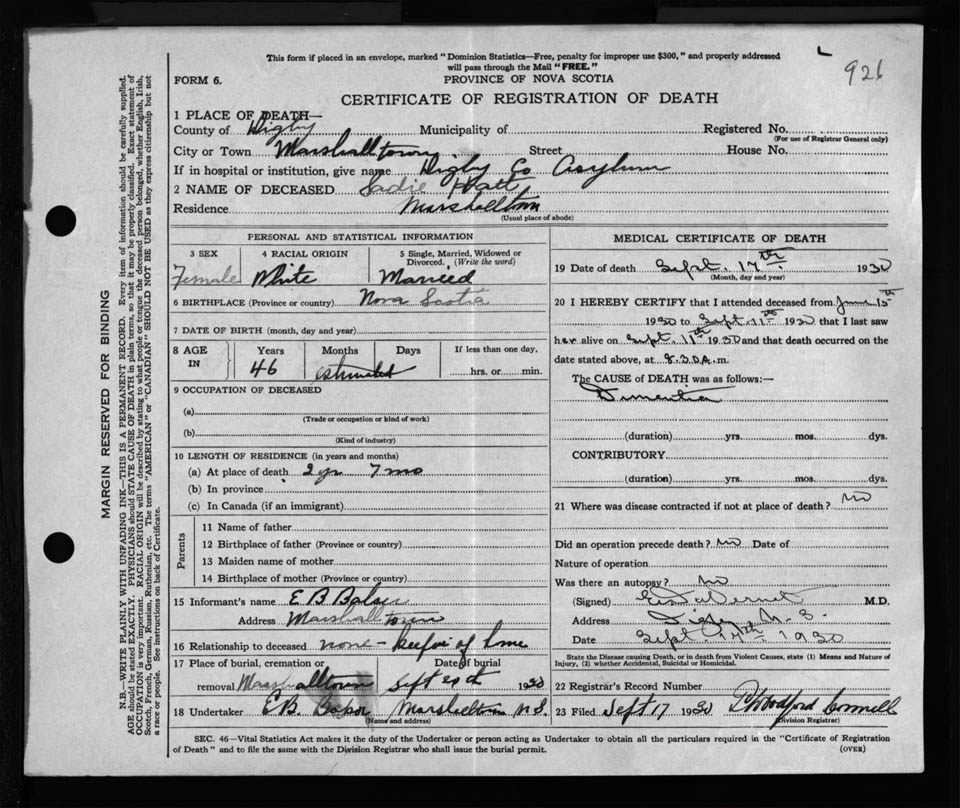 This form if placed in an envelope, marked "Dominion Statistics—Free, penalty for improper use $300," and properly addressed
will pass through the Mail "FREE."
926
FORM 6.
PROVINCE OF NOVA SCOTIA
CERTIFICATE OF REGISTRATION OF DEATH
1 PLACE OF DEATH—
County of Digby Municipality of Registered No.
(For use of Registrar General only)
City or Town Marshalltown Street House No.
If in hospital or institution, give name Digby Co Asylum
2 NAME OF DECEASED Sadie
Residence Marshalltown
(Usual place of abode)
PERSONAL AND STATISTICAL INFORMATION
3 SEX 4 RACIAL ORIGIN 5 Single, Married, Widowed or Divorced. (Write the word)
Female White Married
6 BIRTHPLACE (Province or country) Nova Scotia
7 DATE OF BIRTH (month, day and year)
8 AGE IN Years Months Days If less than one day,
46 estimated hrs. or min.
9 OCCUPATION OF DECEASED
(a)
(Trade or occupation or kind of work)
(b)
(Kind of industry)
10 LENGTH OF RESIDENCE (in years and months)
(a) At place of death 2 yr 7 mo
(b) In province
(c) In Canada (if an immigrant)
Parents
11 Name of father
12 Birthplace of father (Province or country)
13 Maiden name of mother
14 Birthplace of mother (Province or country)
15 Informant's name E B
Address Marshalltown
16 Relationship to deceased none - keeper of home
17 Place of burial, cremation or Date of burial
removal Marshalltown Sept 20th 1930
18 Undertaker E.B. Marshalltown N.S.
(Name and address)
MEDICAL CERTIFICATE OF DEATH
19 Date of death Sept. 17th 1930
(Month, day and year)
20 I HEREBY CERTIFY that I attended deceased from June 15th
1930 to Sept. 11th 1930 that I last saw
her alive on Sept. 11th 1930 and that death occurred on the
date stated above, at 8.30A.m.
The CAUSE of DEATH was as follows:—
Dementia
(duration) yrs. mos. dys.
CONTRIBUTORY
(duration) yrs. mos. dys.
21 Where was disease contracted if not at place of death? No
Did an operation precede death? No Date of
Nature of operation
Was there an autopsy? No
(Signed) M.D.
Address Digby N.S.
Date Sept. 17th 1930
State the Disease causing Death, or in death from Violent Causes, state (1) Means and Nature of
Injury, (2) whether Accidental, Suicidal or Homicidal.
22 Registrar's Record Number
23 Filed Sept 17 1930
(Division Registrar)
SEC. 46—Vital Statistics Act makes it the duty of the Undertaker or person acting as Undertaker to obtain all the particulars required in the "Certificate of Registration
of Death" and to file the same with the Division Registrar who shall issue the burial permit.
(OVER)
MARGIN RESERVED FOR BINDING
N.B.—WRITE PLAINLY WITH UNFADING INK—THIS IS A PERMANENT RECORD. Every item of information should be carefully supplied.
AGE should be stated EXACTLY. PHYSICIANS should STATE CAUSE OF DEATH in plain terms, so that it may be properly classified. Exact statement of
OCCUPATION is very important. RACIAL ORIGIN will be described by stating to what people or tongue the deceased person belonged, whether English, Irish,
Scotch, French, German, Russian, Ruthenian, etc. The terms "AMERICAN" or "CANADIAN" SHOULD NOT BE USED as they express citizenship but not
a race or people. See instructions on back of Certificate.